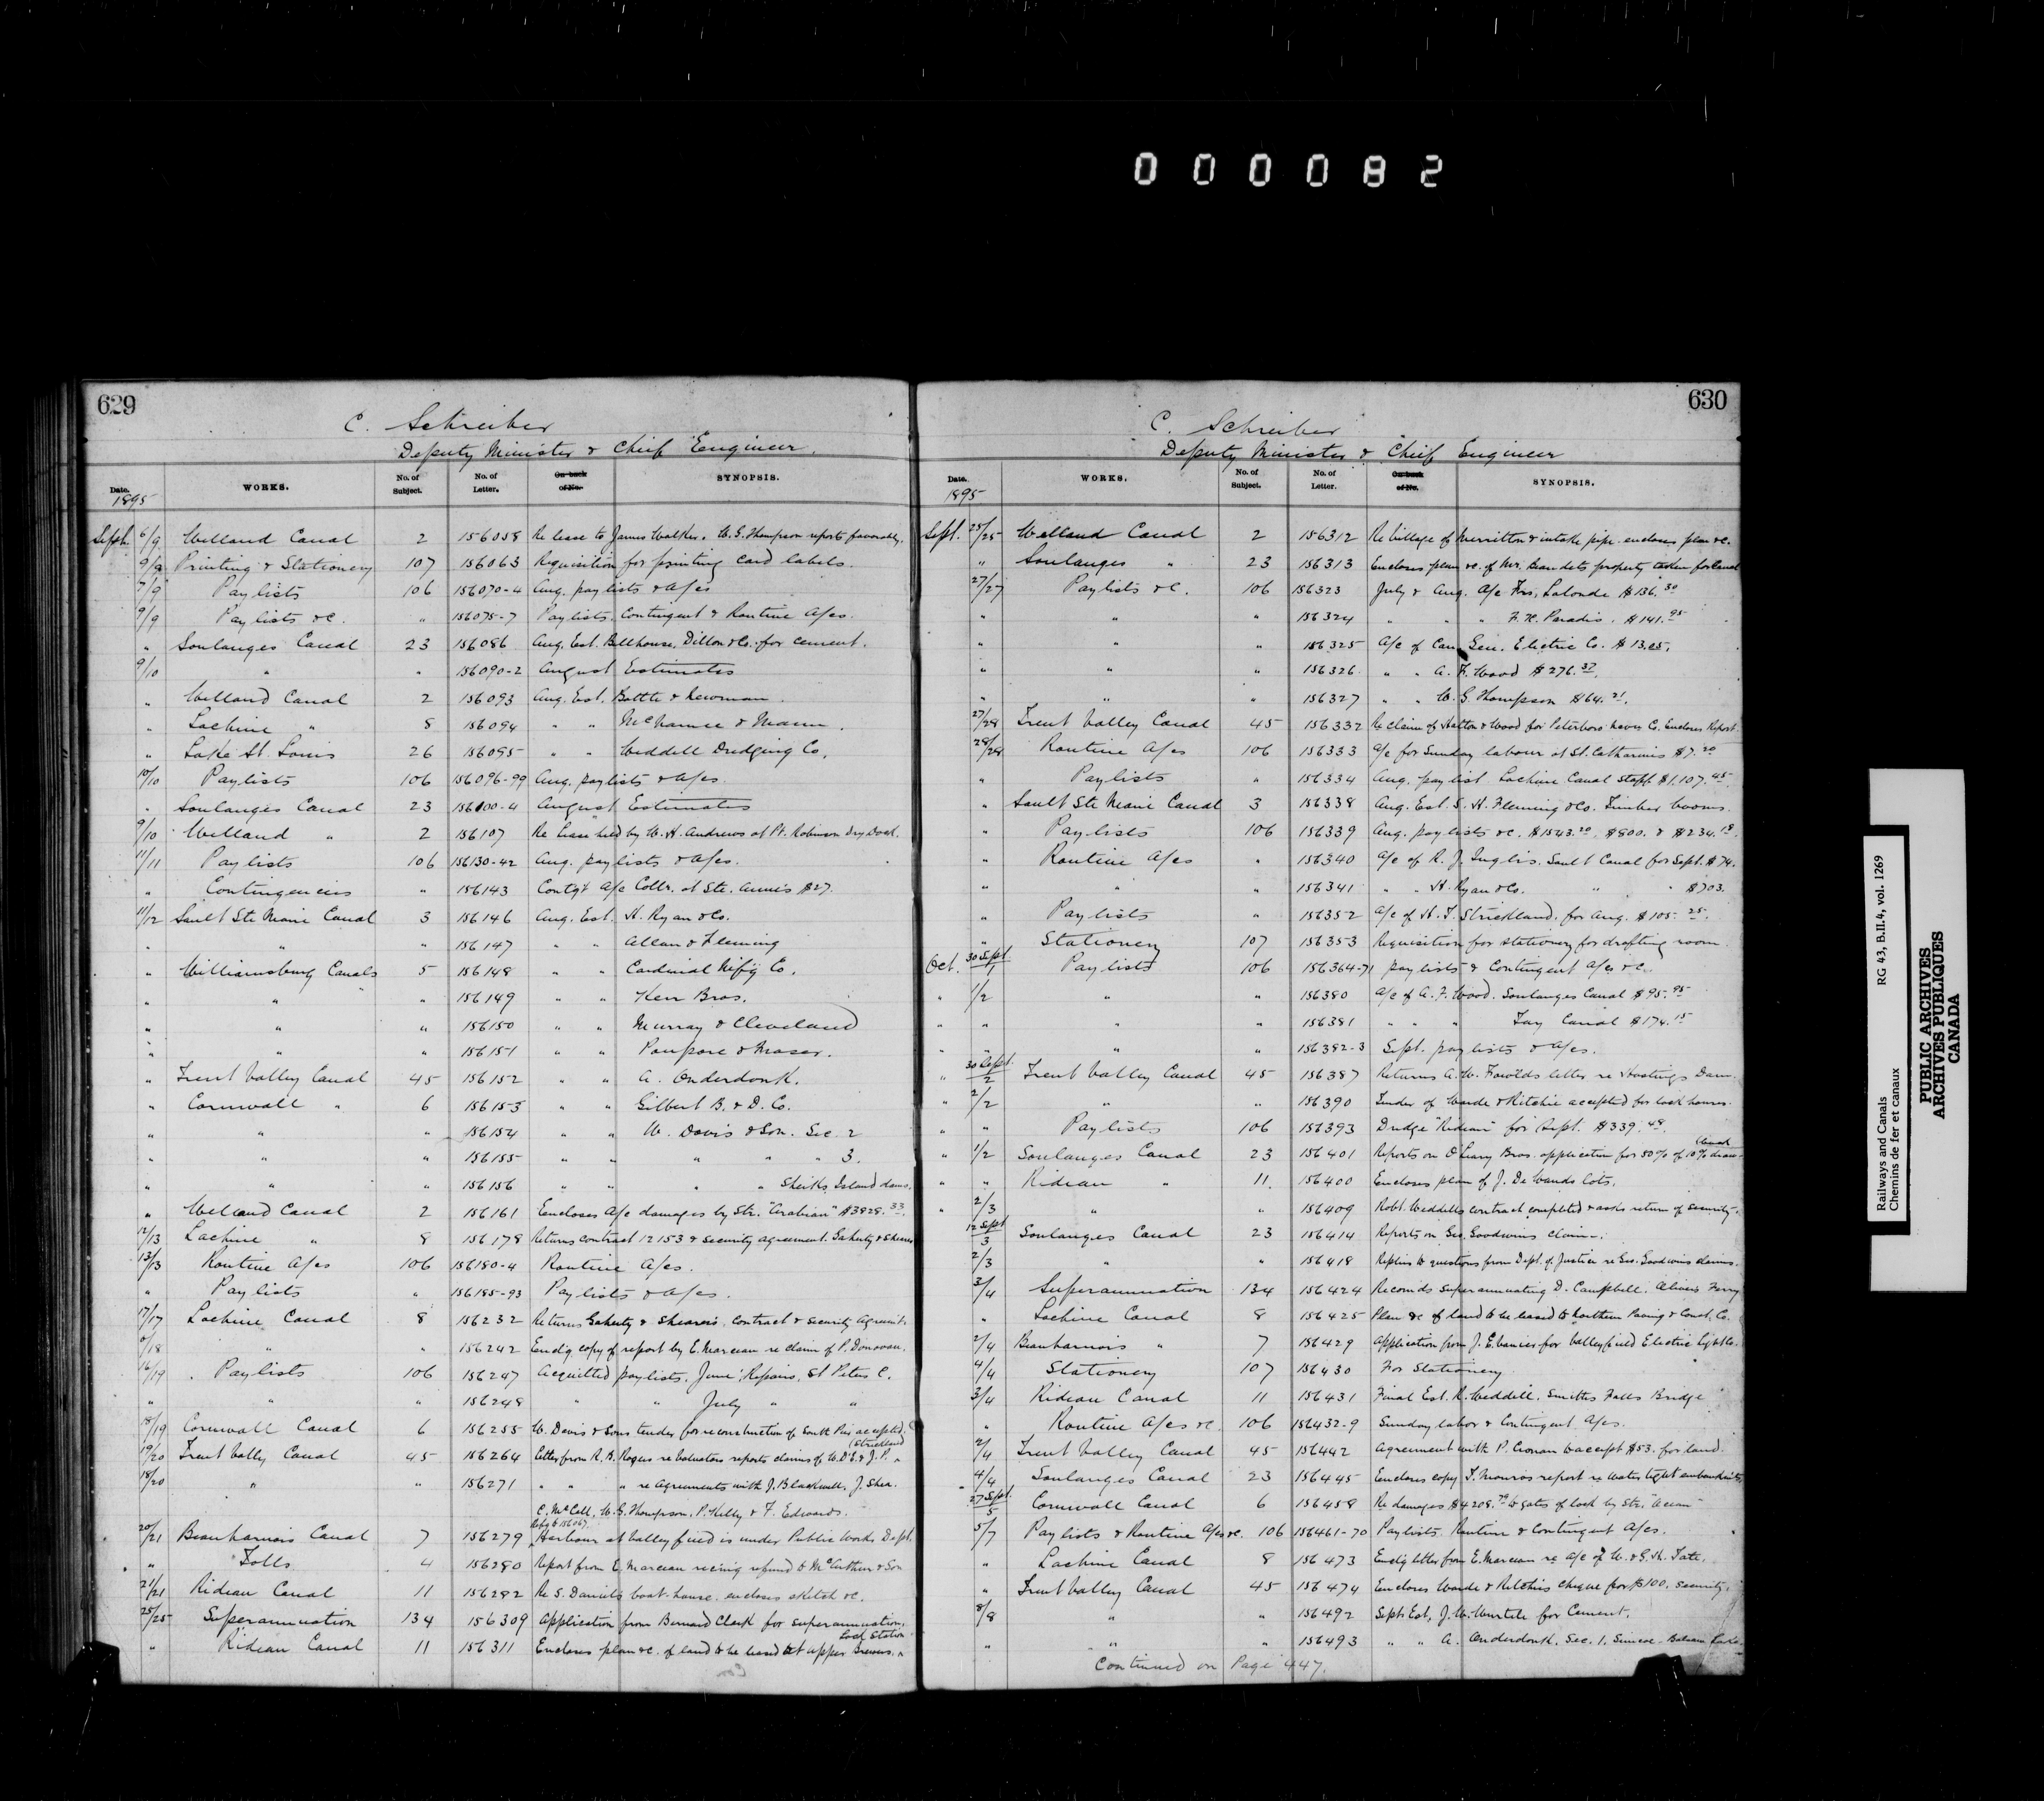 000082
629
C. Schreiber
Deputy Minister & Chief Engineer.
Date. WORKS. No. of Subject. No. of Letter. On back of No. SYNOPSIS.
1895
Sept. 6/9 Welland Canal 2 156058 Re lease to James Walker. W. G. Thompson reports favorably.
9/9 Printing & Stationery 107 156063 Requisition for printing card labels.
7/9 Paylists 106 156070-4 Aug. paylists & a/cs
9/9 Paylists &c. " 156075-7 Paylists, Contingent & Routine a/cs.
" Soulanges Canal 23 156086 Aug. Est. Bellhouse, Dillon & Co. for cement.
9/10 " " 156090-2 August Estimates
" Welland Canal 2 156093 Aug. Est. Battle & Newman.
" Lachine " 8 156094 " " McNamee & Mann.
" Lake St. Louis 26 156095 " " Weddell Dredging Co.
10/10 Paylists 106 156096-99 Aug. paylists & a/cs.
" Soulanges Canal 23 156100-4 August Estimates
9/10 Welland " 2 156107 Re lease held by W. H. Andrews at Pt. Robinson Dry Dock.
11/11 Paylists 106 156130-42 Aug. paylists & a/cs.
" Contingencies " 156143 Contgt a/c Collr. at Ste. Anne's $27.
11/12 Sault Ste Marie Canal 3 156146 Aug. Est. H. Ryan & Co.
" " " 156147 " " Allan & Fleming
" Williamsburg Canals 5 156148 " " Cardinal M'f'g Co.
" " " 156149 " " Kerr Bros.
" " " 156150 " " Murray & Cleveland
" " " 156151 " " Poupore & Fraser.
" Trent Valley Canal 45 156152 " " A. Onderdonk.
" Cornwall " 6 156153 " " Gilbert B. & D. Co.
" " " 156154 " " W. Davis & Son. Sec. 2
" " " 156155 " " " " " 3.
" " " 156156 " " " " Sheiks Island dams.
" Welland Canal 2 156161 Encloses a/c damages by Str. "Arabian" $3828.33.
12/13 Lachine " 8 156178 Returns contract 12153 & security agreement. Gaherty & Shearer
13/13 Routine a/cs 106 156180-4 Routine a/cs.
" Paylists " 156185-93 Paylists & a/cs.
17/17 Lachine Canal 8 156232 Returns Gaherty & Shearer's contract & security Agreemt.
/18 " " 156242 Encl'g copy of report by E. Marceau re claim of P. Donovan.
16/19 Paylists 106 156247 Acquitted paylists, June, Repairs, St Peters C.
" " " 156248 " " July " "
18/19 Cornwall Canal 6 156255 W. Davis & Sons tender for reconstruction of South Pier accepted.
19/20 Trent Valley Canal 45 156264 Letter from R. B. Rogers re Valuators reports claims of W. D. E. & J. P. (Strickland
18/20 " " 156271 " " " re Agreements with J. Blackwell, J. Sher.
C. McCall, W. G. Thompson, P. Kelly & F. Edwards.
Ref'g to 156067.
20/21 Beauharnois Canal 7 156279 Harbour at Valleyfield is under Public Works Dept.
" Tolls 4 156280 Report from E. Marceau re refund to McArthur & Son
21/21 Rideau Canal 11 156282 Re S. Daniels boat-house. encloses sketch &c.
25/25 Superannuation 134 156309 Application from Bernard Clark for superannuation.
" Rideau Canal 11 156311 Encloses plan &c. of land to be leased at upper Brewers. Lock Station
630
C. Schreiber
Deputy Minister & Chief Engineer
Date. WORKS. No. of Subject. No. of Letter. On back of No. SYNOPSIS.
1895
Sept. 25/25 Welland Canal 2 156312 Re Village of Merritton & intake pipe. encloses plan &c.
" Soulanges " 23 156313 Encloses plan &c. of Mr. Beaudets property taken for Canal
27/27 Paylists &c. 106 156323 July & Aug. a/c Frs. Lalonde $136.30
" " " 156324 " " " F. X. Paradis. $141.95
" " " 156325 a/c of Can. Gen. Electric Co. $13.25.
" " " 156326 " " A. F. Wood $276.37.
" " " 156327 " " W. G. Thompson $64.21.
27/28 Trent Valley Canal 45 156332 Re claim of Hatton & Wood for Peterboro Navn Co. Encloses Report.
28/28 Routine a/cs 106 156333 a/c for Sunday labour at St. Catharines $7.20
" Paylists " 156334 Aug. paylist Lachine Canal staff $1,107.45.
" Sault Ste Marie Canal 3 156338 Aug. Est. S. H. Fleming & Co. Timber booms.
" Paylists 106 156339 Aug. paylists &c. $1543.20, $800. & $234.13.
" Routine a/cs " 156340 a/c of R. J. Inglis. Sault Canal for Sept. $74.
" " " 156341 " " H. Ryan & Co. " " $703.
" Paylists " 156352 a/c of H. T. Strickland, for Aug. $105.25.
" Stationery 107 156353 Requisition for stationery for drafting room.
Oct. 30 Sept./1 Paylists 106 156364-71 paylists & Contingent a/cs &c.
" 1/2 " " 156380 a/c of A. F. Wood. Soulanges Canal $95.95
" " " " 156381 " " " Tay Canal $174.15
" " " " 156382-3 Sept. paylists & a/cs.
" 30 Sept./2 Trent Valley Canal 45 156387 Returns A. W. Fowlds letter re Hastings Dam.
" 2/2 " " 156390 Tender of Warde & Ritchie accepted for lock houses.
" " Paylists 106 156393 Dredge "Rideau" for Sept. $339.48.
" 1/2 Soulanges Canal 23 156401 Reports on O'Leary Bros. application for 50% of 10%
" " Rideau " 11. 156400 Encloses plan of J. De Wands lots.
" 2/3 " " 156409 Robt. Weddells contract completed & asks return of security.
12 Sept/3 Soulanges Canal 23 156414 Reports on Geo. Goodwins claim.
2/3 " " 156418 Replies to questions from Dept. of Justice re Geo. Goodwins claims.
3/4 Superannuation 134 156424 Recomds superannuating D. Campbell, Olivers Ferry
" Lachine Canal 8 156425 Plan &c of land to be leased to Northern Paving & Const. Co.
2/4 Beauharnois " 7 156429 Application from J. E. for Valleyfield Electric Light Co.
4/4 Stationery 107 156430 For Stationery
3/4 Rideau Canal 11 156431 Final Est. R. Weddell. Smiths Falls Bridge
" Routine a/cs &c 106 156432-9 Sunday labor & Contingent a/cs.
2/4 Trent Valley Canal 45 156442 Agreement with P. Cronan to accept $53. for land.
" 4/4 Soulanges Canal 23 156445 Encloses copy T. Monros report re water tight embankments
27 Sept/5 Cornwall Canal 6 156458 Re damages $4208.79 to gates of lock by Str. "Ocean"
5/7 Paylists & Routine a/cs &c. 106 156461-70 Paylists. Routine & Contingent a/cs.
" Lachine Canal 8 156473 Encl'g letter from E. Marceau re a/c of W. & G. H. Tate.
" Trent Valley Canal 45 156474 Encloses Warde & Ritchies cheque for $100. security.
8/8 " " 156492 Sept. Est. J. W. Wurtele for Cement.
" " " 156493 " " A. Onderdonk, Sec. 1, Simcoe-Balsam Lake.
Continued on Page 447.
Railways and Canals
Chemins de fer et canaux
RG 43, B.II.4, vol. 1269
PUBLIC ARCHIVES
ARCHIVES PUBLIQUES
CANADA